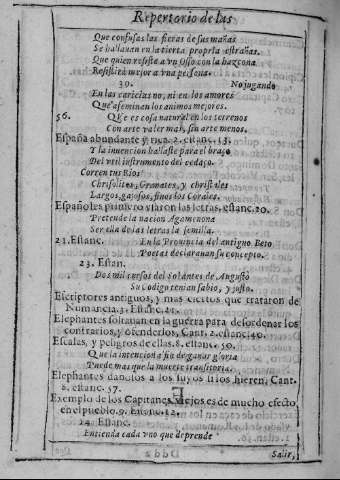 Repertorio de las
Que confusas las fieras de sus mañas
Se hallauan en la tierra propria estrañas.
Que quien resiste a vn Osso con la hazcona
Resistirà mejor a vna persona.
30. No jugando
En las caricias no, ni en los amores
Que afeminan los animos mejores.
56. QVe es cosa natural en los terrenos
Con arte valer mas, sin arte menos.
España abundante y rica. 2. estanc. 13.
Y la inuencion hallaste para el braço
Del vtil instrumento del cedaço.
Corren tus Rios
Chrisolitos, Granates, y christales
Largos, gajosos, finos los Corales.
Españoles primero vsaron las letras, estanc. 20.
Pretende la nacion Agamenona
Ser ella de las letras la semilla.
21. Estanc. En la Prouincia del antiguo Beto
Poetas declarauan su concepto.
23. Estan.
Dos mil cursos del Sol antes de Augusto
Su Codigo tenian sabio, y justo.
Escriptores antiguos, y mas ciertos que trataron de
Numancia. 3. Estanc. 21.
Elephantes soltauan en la guerra para desordenar los
contrarios, y ofenderlos, Cant. 2. estanc. 40.
Escalas, y peligros de ellas. 8. estanc. 50.
Que la intencion a fin de ganar gloria
Puede mas que la muerte transitoria.
Elephantes dañosos a los suyos si los hieren, Cant.
2. estanc. 57.
Exemplo de los Capitanes viejos es de mucho efecto,
en el pueblo. 9. Estanc. 12.
14. Estanc.
Entienda cada vno que deprende
Salir,